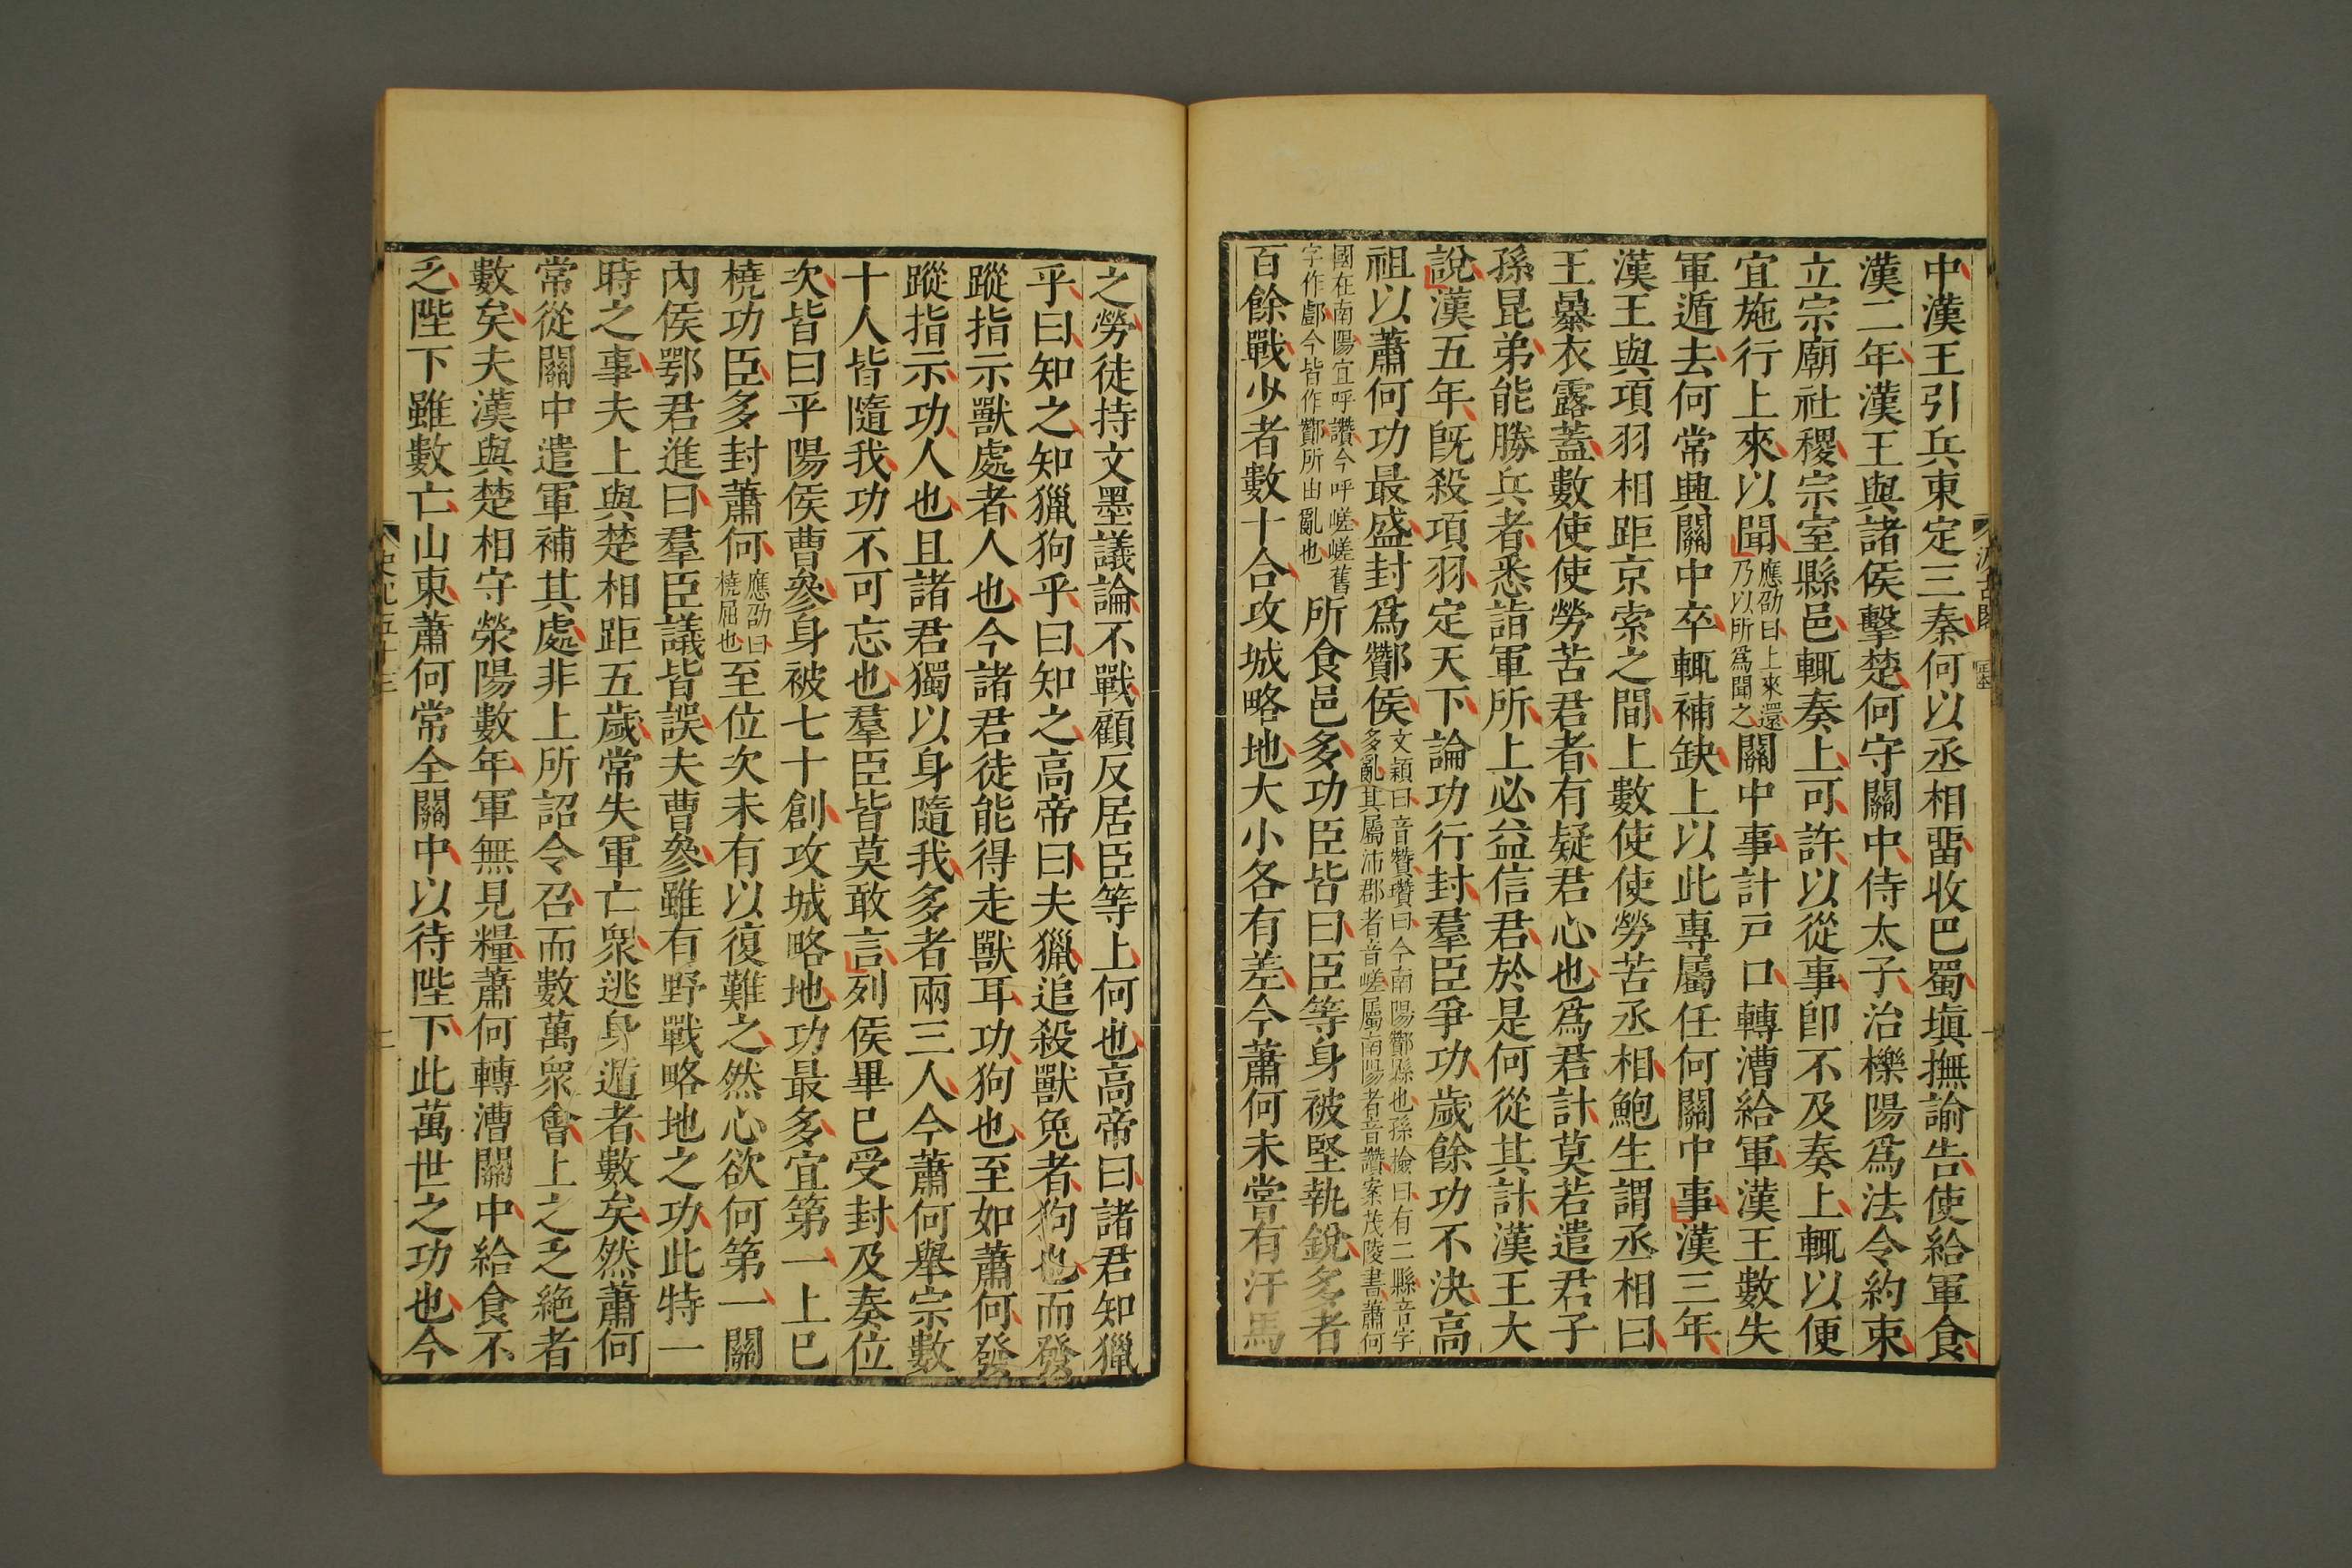 中漢王引兵東定三秦何以丞相畱收巴蜀塡撫諭告使給軍食
漢二年漢王與諸侯擊楚何守關中侍太子治櫟陽爲法令約束
立宗廟社稷宗室縣邑輒奏上可許以從事卽不及奏上輒以便
宜施行上來以聞應劭曰上來還乃以所爲聞之關中事計戸口轉漕給軍漢王數失
軍遁去何常興關中卒輒補缺上以此專屬任何關中事漢三年
漢王與項羽相距京索之間上數使使勞苦丞相鮑生謂丞相曰
王暴衣露蓋數使使勞苦君者有疑君心也爲君計莫若遣君子
孫昆弟能勝兵者悉詣軍所上必益信君於是何從其計漢王大
說漢五年旣殺項羽定天下論功行封羣臣爭功歲餘功不決高
祖以蕭何功最盛封爲酇侯文穎曰音贊瓚曰今南陽酇縣也孫檢曰有二縣音字多亂其屬沛郡者音嵯屬南陽者音讚案茂陵書蕭何
國在南陽宜呼讚今呼嵯嵯舊字作䣜今皆作酇所由亂也所食邑多功臣皆曰臣等身被堅執銳多者
百餘戰少者數十合攻城略地大小各有差今蕭何未嘗有汗馬
汲古閣
毛氏正本
之勞徒持文墨議論不戰顧反居臣等上何也高帝曰諸君知獵
乎曰知之知獵狗乎曰知之高帝曰夫獵追殺獸兔者狗也而發
蹤指示獸處者人也今諸君徒能得走獸耳功狗也至如蕭何發
蹤指示功人也且諸君獨以身隨我多者兩三人今蕭何舉宗數
十人皆隨我功不可忘也羣臣皆莫敢言列侯畢已受封及奏位
次皆曰平陽侯曹參身被七十創攻城略地功最多宜第一上已
橈功臣多封蕭何應劭曰橈屈也至位次未有以復難之然心欲何第一關
內侯鄂君進曰羣臣議皆誤夫曹參雖有野戰略地之功此特一
時之事夫上與楚相距五歲常失軍亡衆逃身遁者數矣然蕭何
常從關中遣軍補其處非上所詔令召而數萬衆會上之乏絕者
數矣夫漢與楚相守滎陽數年軍無見糧蕭何轉漕關中給食不
乏陛下雖數亡山東蕭何常全關中以待陛下此萬世之功也今
史記五十三